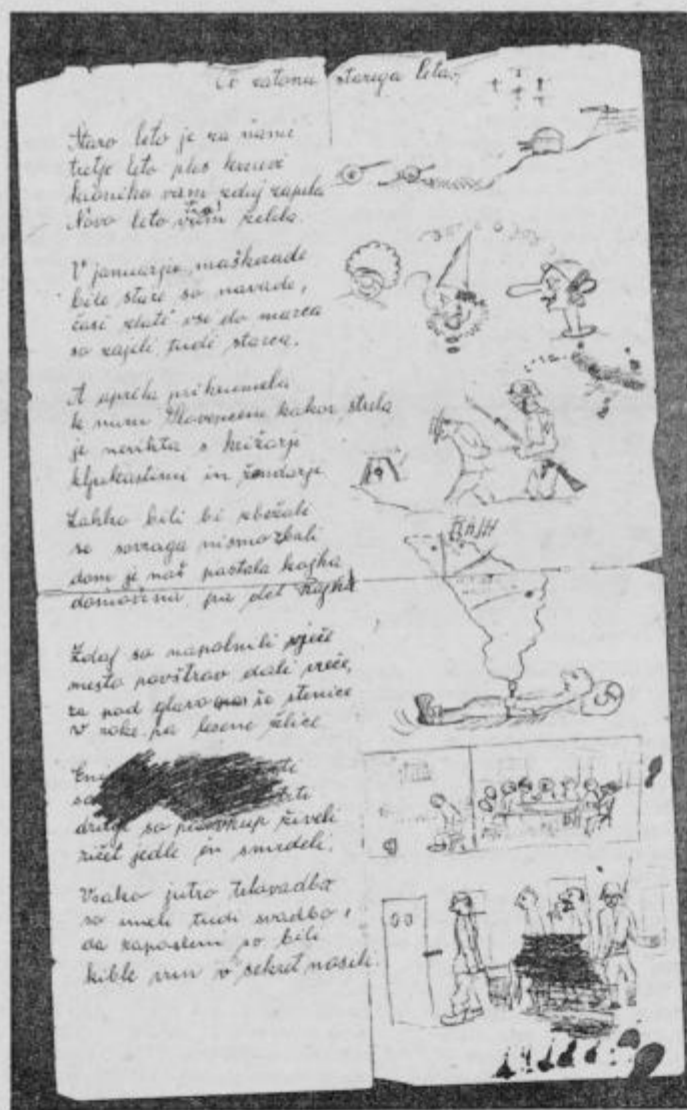 Ob zatonu starega leta
Staro leto je za nami
tretje leto ples krvavi
kroniko vam zdaj zapola
Novo leto vam želela.
V januarju maškarade
bile stare so navade,
časi zlati vse do marca
so zajeli tudi starca.
A aprila prihrumela
k nam Slovencem kakor strela
je nevihta s križarji
kljukastimi in žandarji
Lahko bili bi zbežali
se sovraga nismo zbali
dom je naš postala kajha
domovina pa del Rajha
Zdaj so napolnili ječe
mesto povštrov dali vreče,
za pod glavo še stenice
v roke pa lesene žlice
drugi so pa vkup živeli
ričet jedli in smrdeli.
Vsako jutro telovadbo
so imeli tudi svadbo,
da zaposleni so bili
kible ven v sekret nosili.